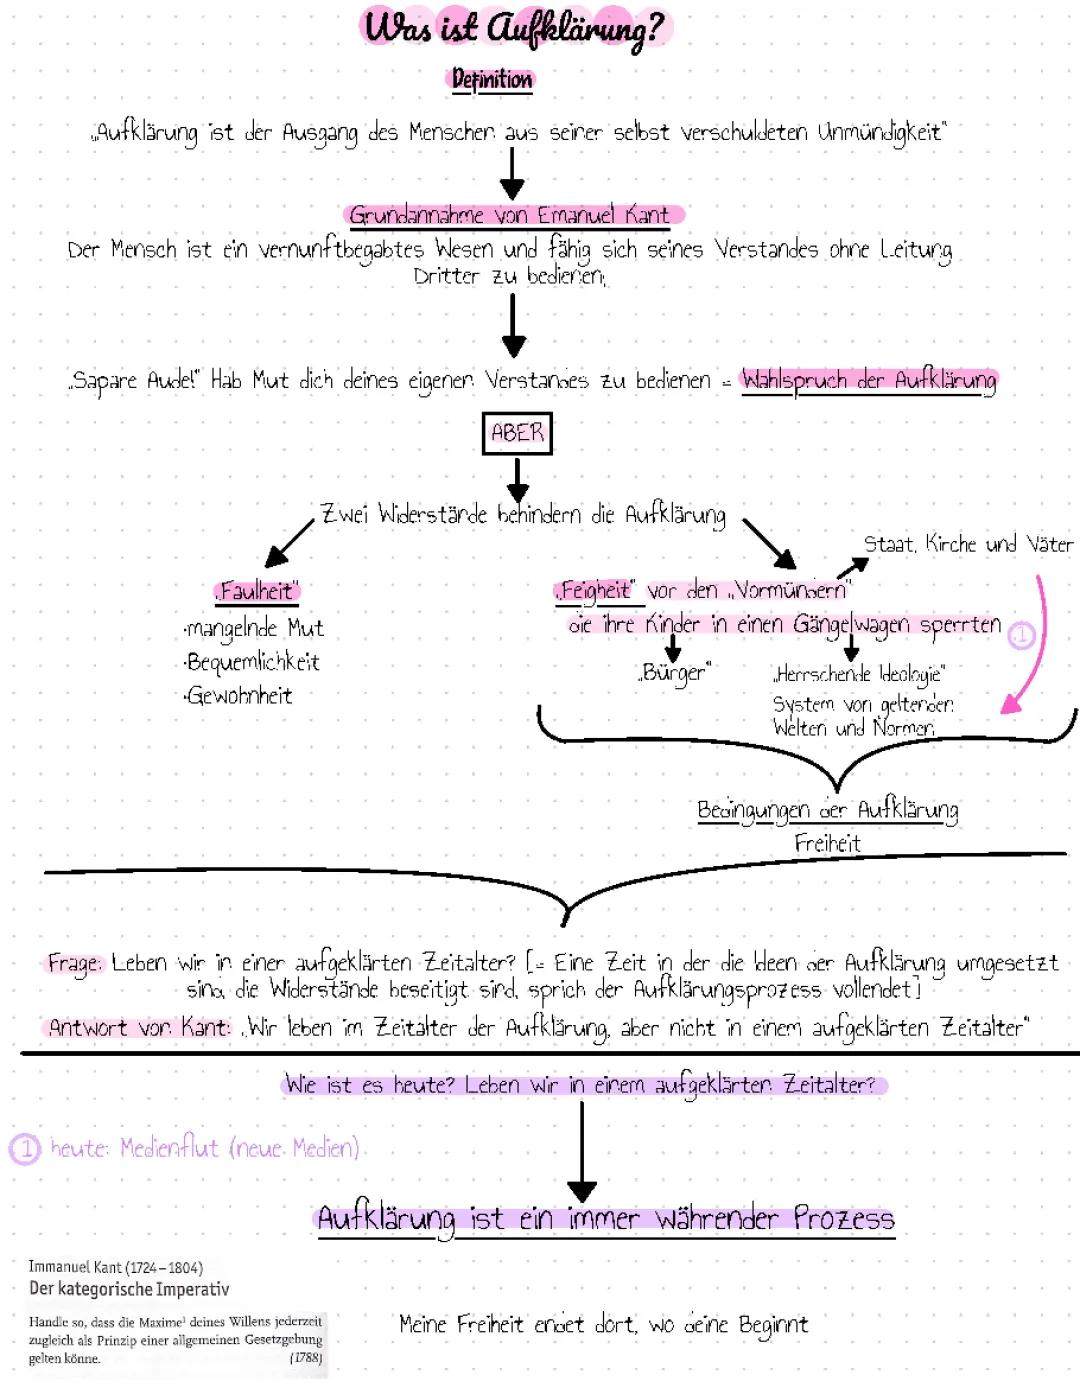 Was ist Aufklärung?
Definition
„Aufklärung ist der Ausgang des Menschen aus seiner selbst verschuldeten Unmündigkeit"
Grundannahme von Emanuel Kant
Der Mensch ist ein vernunftbegabtes Wesen und fähig sich seines Verstandes ohne Leitung
Dritter zu bedienen;
„Sapare Aude!" Hab Mut dich deines eigenen Verstandes zu bedienen = Wahlspruch der Aufklärung
ABER
Zwei Widerstände behindern die Aufklärung
Staat, Kirche und Väter
„Faulheit"
„Feigheit" vor den „Vormündern"
·mangelnde Mut
die ihre Kinder in einen Gängelwagen sperrten
1
·Bequemlichkeit
„Bürger"
„Herrschende Ideologie"
·Gewohnheit
System von geltenden
Welten und Normen
Bedingungen der Aufklärung
Freiheit
Frage: Leben wir in einer aufgeklärten Zeitalter? [= Eine Zeit in der die Ideen der Aufklärung umgesetzt
sind, die Widerstände beseitigt sind, sprich der Aufklärungsprozess vollendet]
Antwort von Kant: „Wir leben im Zeitalter der Aufklärung, aber nicht in einem aufgeklärten Zeitalter"
Wie ist es heute? Leben wir in einem aufgeklärten Zeitalter?
1 heute: Medienflut (neue Medien)
Aufklärung ist ein immer währender Prozess
Immanuel Kant (1724–1804)
Der kategorische Imperativ
Handle so, dass die Maxime¹ deines Willens jederzeit
zugleich als Prinzip einer allgemeinen Gesetzgebung
gelten könne. (1788)
Meine Freiheit endet dort, wo deine Beginnt